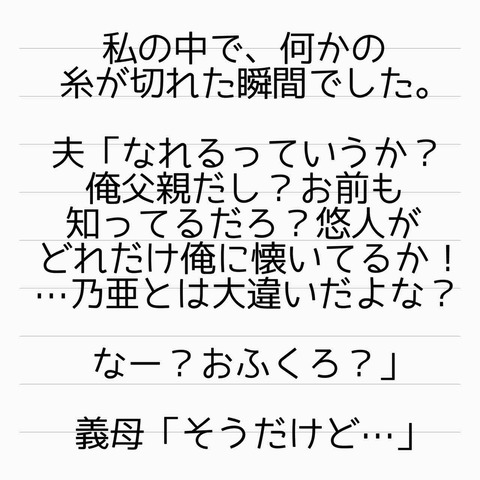 私の中で、何かの
糸が切れた瞬間でした。
夫「なれるっていうか？
俺父親だし？お前も
知ってるだろ？悠人が
どれだけ俺に懐いてるか！
…乃亜とは大違いだよな？
なー？おふくろ？」
義母「そうだけど…」